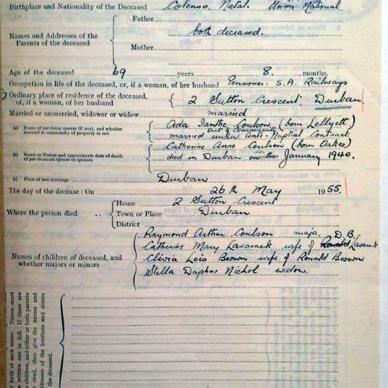 Birthplace and Nationality of the Deceased Colenso, Natal. Union National
Father
Names and Addresses of the Parents of the deceased both deceased.
Mother
Age of the deceased 69 years 8. months.
Occupation in life of the deceased, or, if a woman, of her husband Pensioner. S.A. Railways
Ordinary place of residence of the deceased, or, if a woman, of her husband 2 Sutton Crescent Durban
Married or unmarried, widower or widow married
(a) Name of surviving spouse (if any), and whether married in community of property or not Ada Ianthe Coulson (born
married out of community under Ante-Nuptial Contract
(b) Name or Names and approximate date of death of pre-deceased spouse or spouses Catherine Anne Coulson (born Oakes)
died in Durban January 1940.
(c) Place of last marriage Durban
The day of the decease: On 26th May 1955
House 2 Sutton Crescent
Where the person died .. Town or Place Durban
District
Raymond Arthur Coulson major D.B.
Names of children of deceased, and whether majors or minors Catherine Mary Lasaneck wife of Ronald Lasaneck
Clivia Lois Brown wife of Ronald Brown
Stella Daphne Nichol widow.